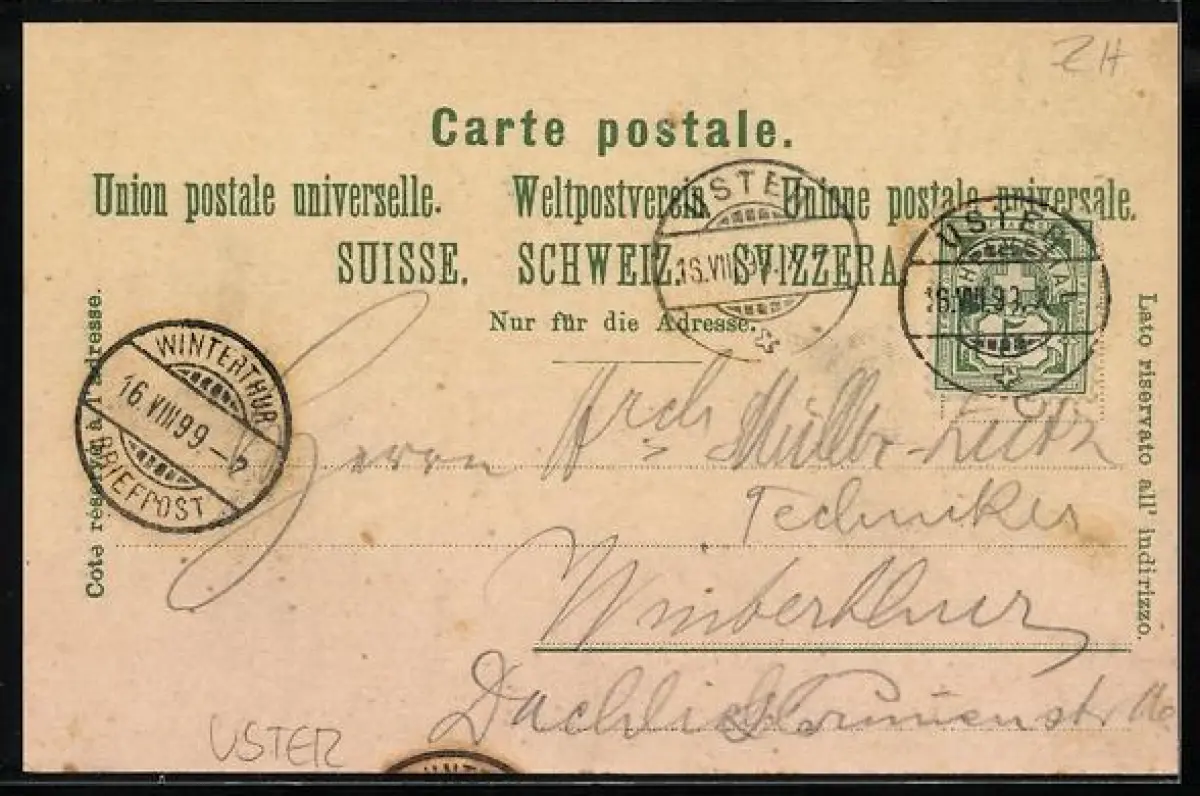 ZH
Carte postale.
Union postale universelle. Weltpostverein. Unione postale universale.
SUISSE. SCHWEIZ. SVIZZERA.
Nur für die Adresse.
Côté réservé à l'adresse.
Lato riservato all' indirizzo.
USTER
16.VIII.99.
USTER
16.VIII.99.
WINTERTHUR
16.VIII.99.-7
BRIEFPOST
Herrn Arch Müller-
Techniker
Winterthur
USTER